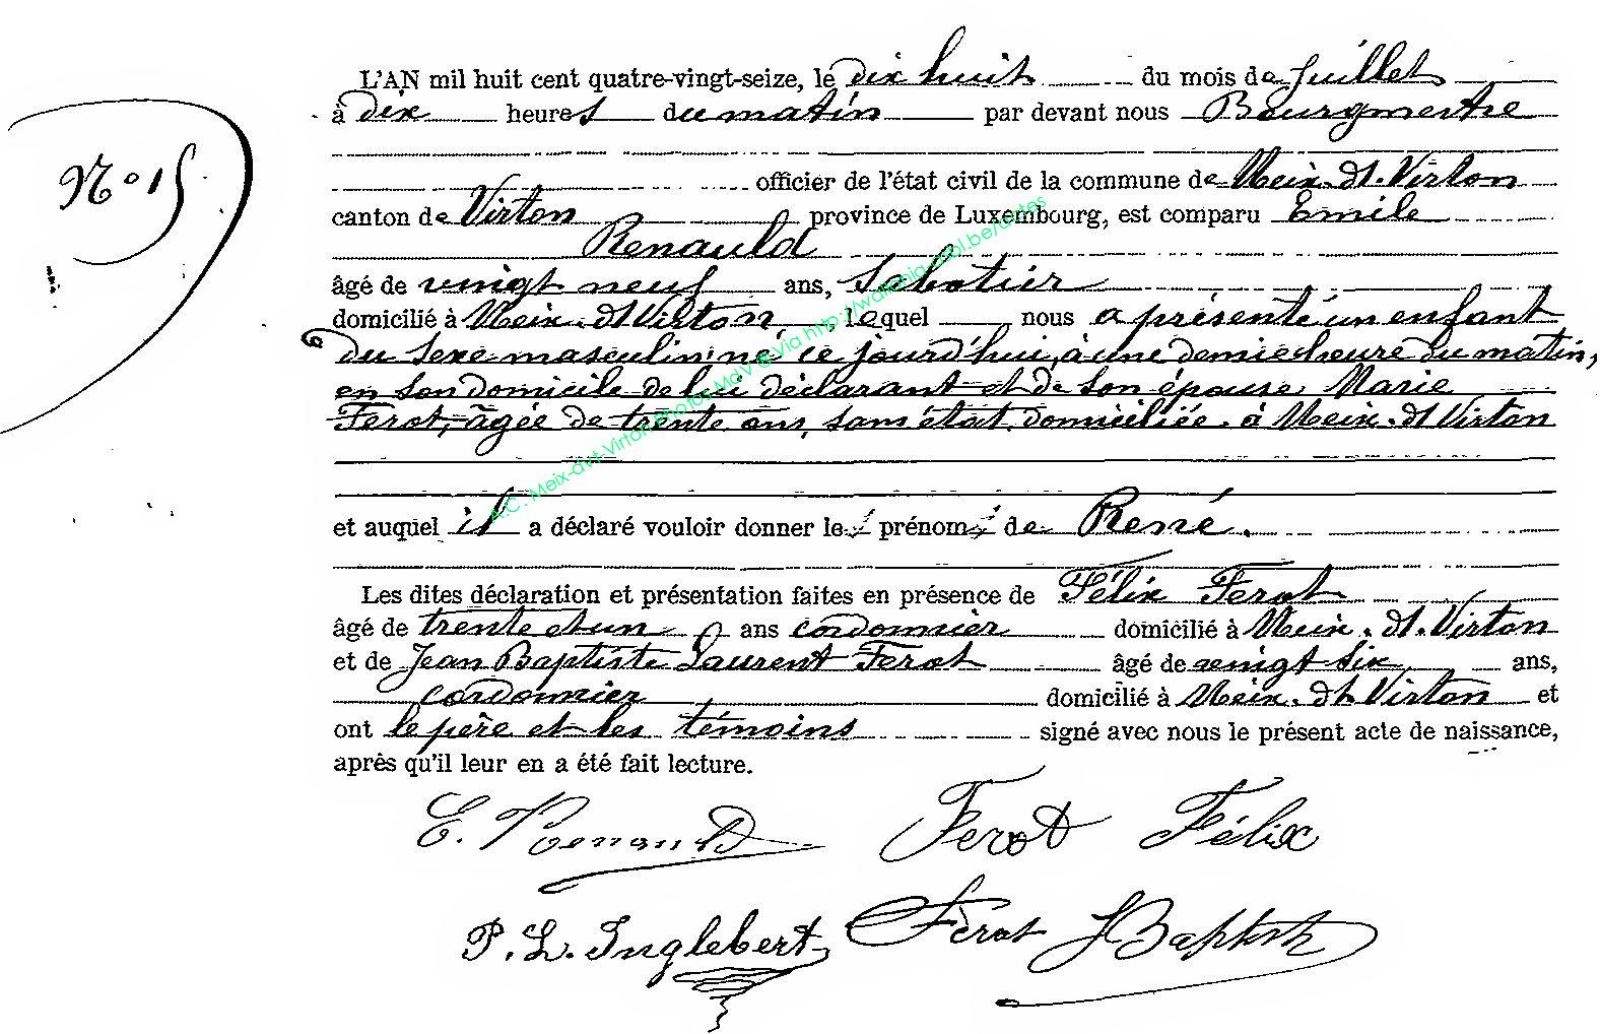 L'AN mil huit cent quatre-vingt-seize, le dix huit du mois de Juillet
à dix heures du matin par devant nous Bourgmestre
N° 15
officier de l'état civil de la commune de Meix-dt-Virton
canton de Virton province de Luxembourg, est comparu Emile
Renauld
âgé de vingt neuf ans, Sabotier
domicilié à Meix-dt Virton, lequel nous a présenté un enfant
du sexe masculin né ce jourd'hui, à une demie heure du matin,
en son domicile de lui déclarant et de son épouse, Marie
Ferot, âgée de trente ans, sans état, domiciliée à Meix-dt Virton
et auquel il a déclaré vouloir donner le prénom de René.
Les dites déclaration et présentation faites en présence de Félix Ferot
âgé de trente et un ans cordonnier domicilié à Meix-dt-Virton
et de Jean Baptiste Laurent Ferot âgé de vingt six ans,
cordonnier domicilié à Meix-dt Virton et
ont le père et les témoins signé avec nous le présent acte de naissance,
après qu'il leur en a été fait lecture.
E. Renauld Ferot Félix
P. L. Inglebert Férot J Baptiste